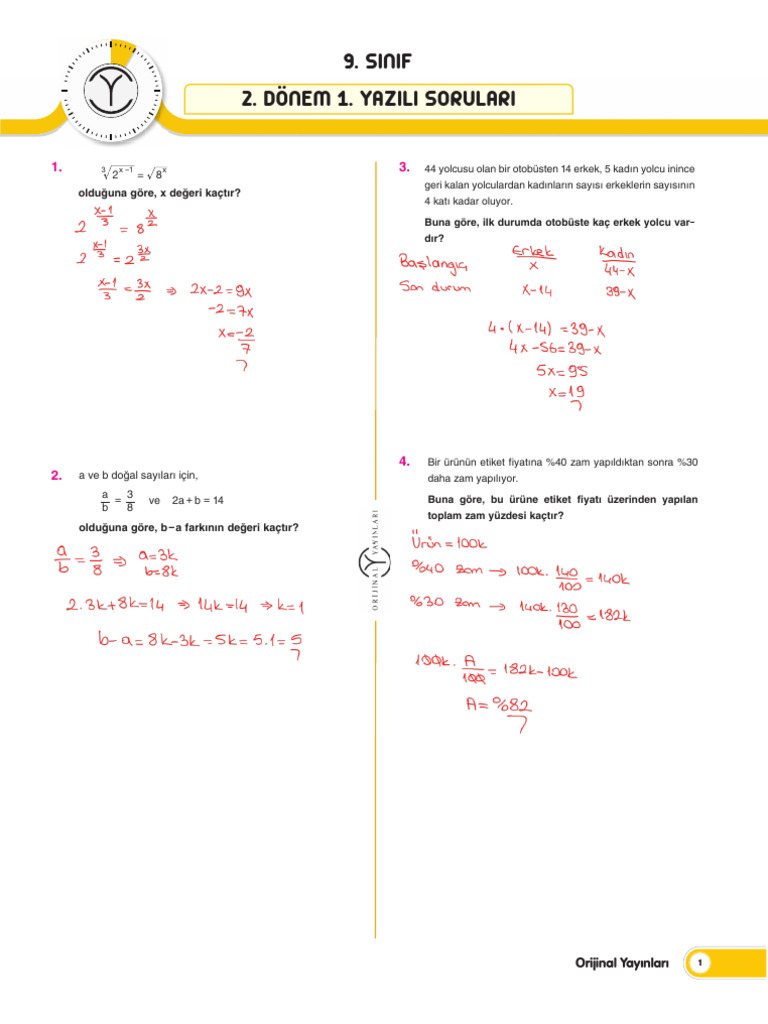 9. SINIF
2. DÖNEM 1. YAZILI SORULARI
1.
∛(2^(x–1)) = √(8^x)
olduğuna göre, x değeri kaçtır?
2^((x-1)/3) = 8^(x/2)
2^((x-1)/3) = 2^(3x/2)
(x-1)/3 = 3x/2 ⇒ 2x-2=9x
-2=7x
x=-2/7
2.
a ve b doğal sayıları için,
a/b = 3/8 ve 2a+b = 14
olduğuna göre, b–a farkının değeri kaçtır?
a/b = 3/8 ⇒ a=3k
b=8k
2.3k+8k=14 ⇒ 14k=14 ⇒ k=1
b-a=8k-3k=5k=5.1=5
ORİJİNAL YAYINLARI
3.
44 yolcusu olan bir otobüsten 14 erkek, 5 kadın yolcu inince
geri kalan yolculardan kadınların sayısı erkeklerin sayısının
4 katı kadar oluyor.
Buna göre, ilk durumda otobüste kaç erkek yolcu var-
dır?
Erkek Kadın
Başlangıç x 44-x
Son durum x-14 39-x
4·(x-14)=39-x
4x-56=39-x
5x=95
x=19
4.
Bir ürünün etiket fiyatına %40 zam yapıldıktan sonra %30
daha zam yapılıyor.
Buna göre, bu ürüne etiket fiyatı üzerinden yapılan
toplam zam yüzdesi kaçtır?
Ürün=100k
%40 zam → 100k. 140/100 = 140k
%30 zam → 140k. 130/100 = 182k
100k. A/100 = 182k-100k
A=%82
Orijinal Yayınları
1